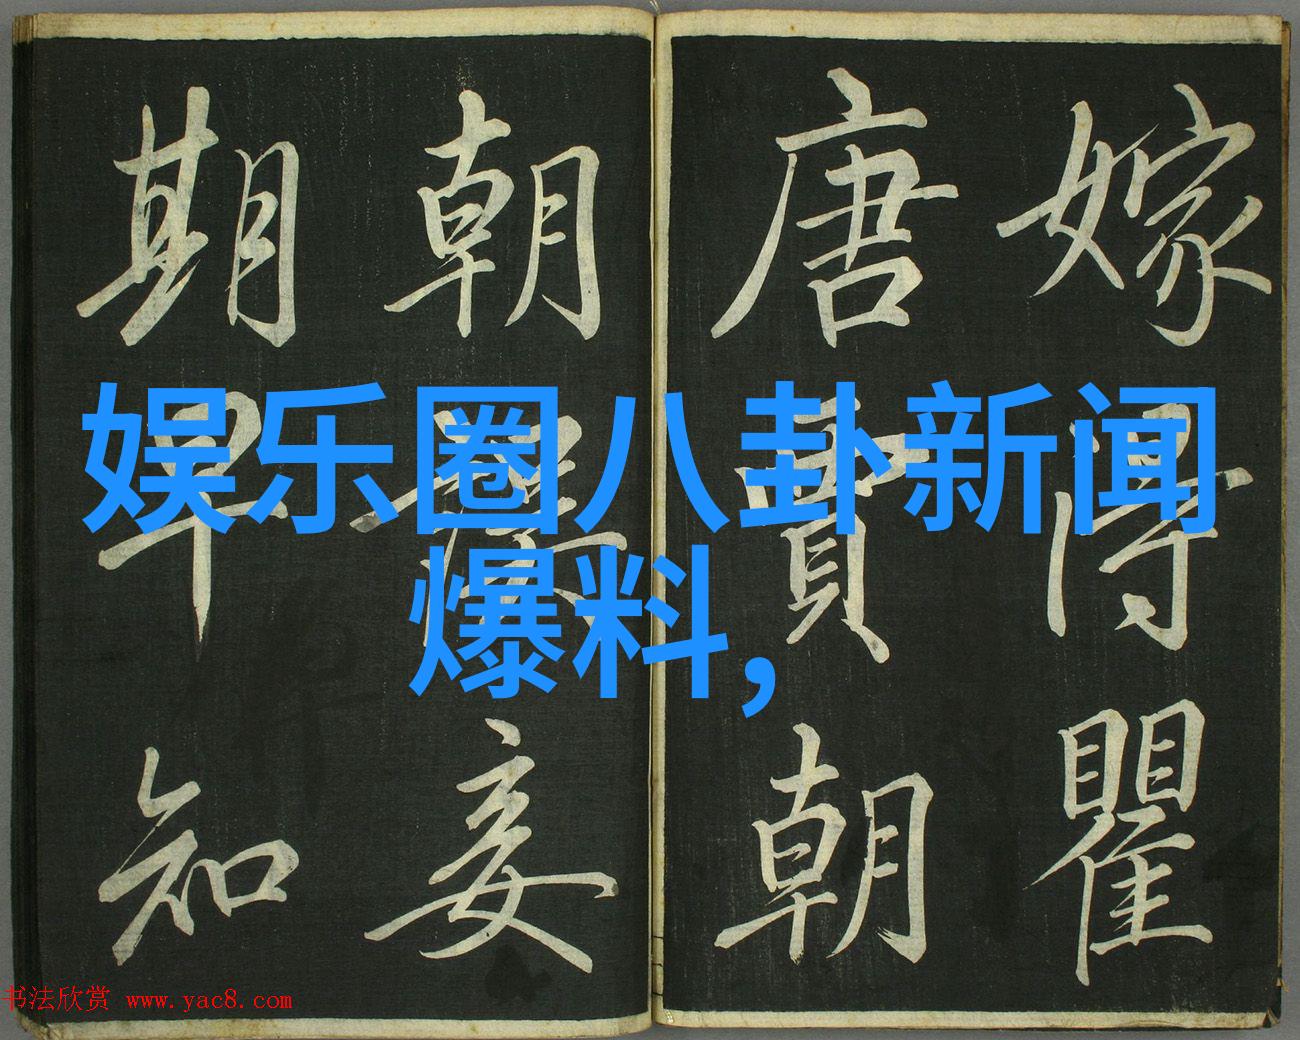 嫁得瞿
唐賈朝
朝妾
期早知
娱乐圈八卦新闻
爆料,
书法欣赏 www.yac8.com